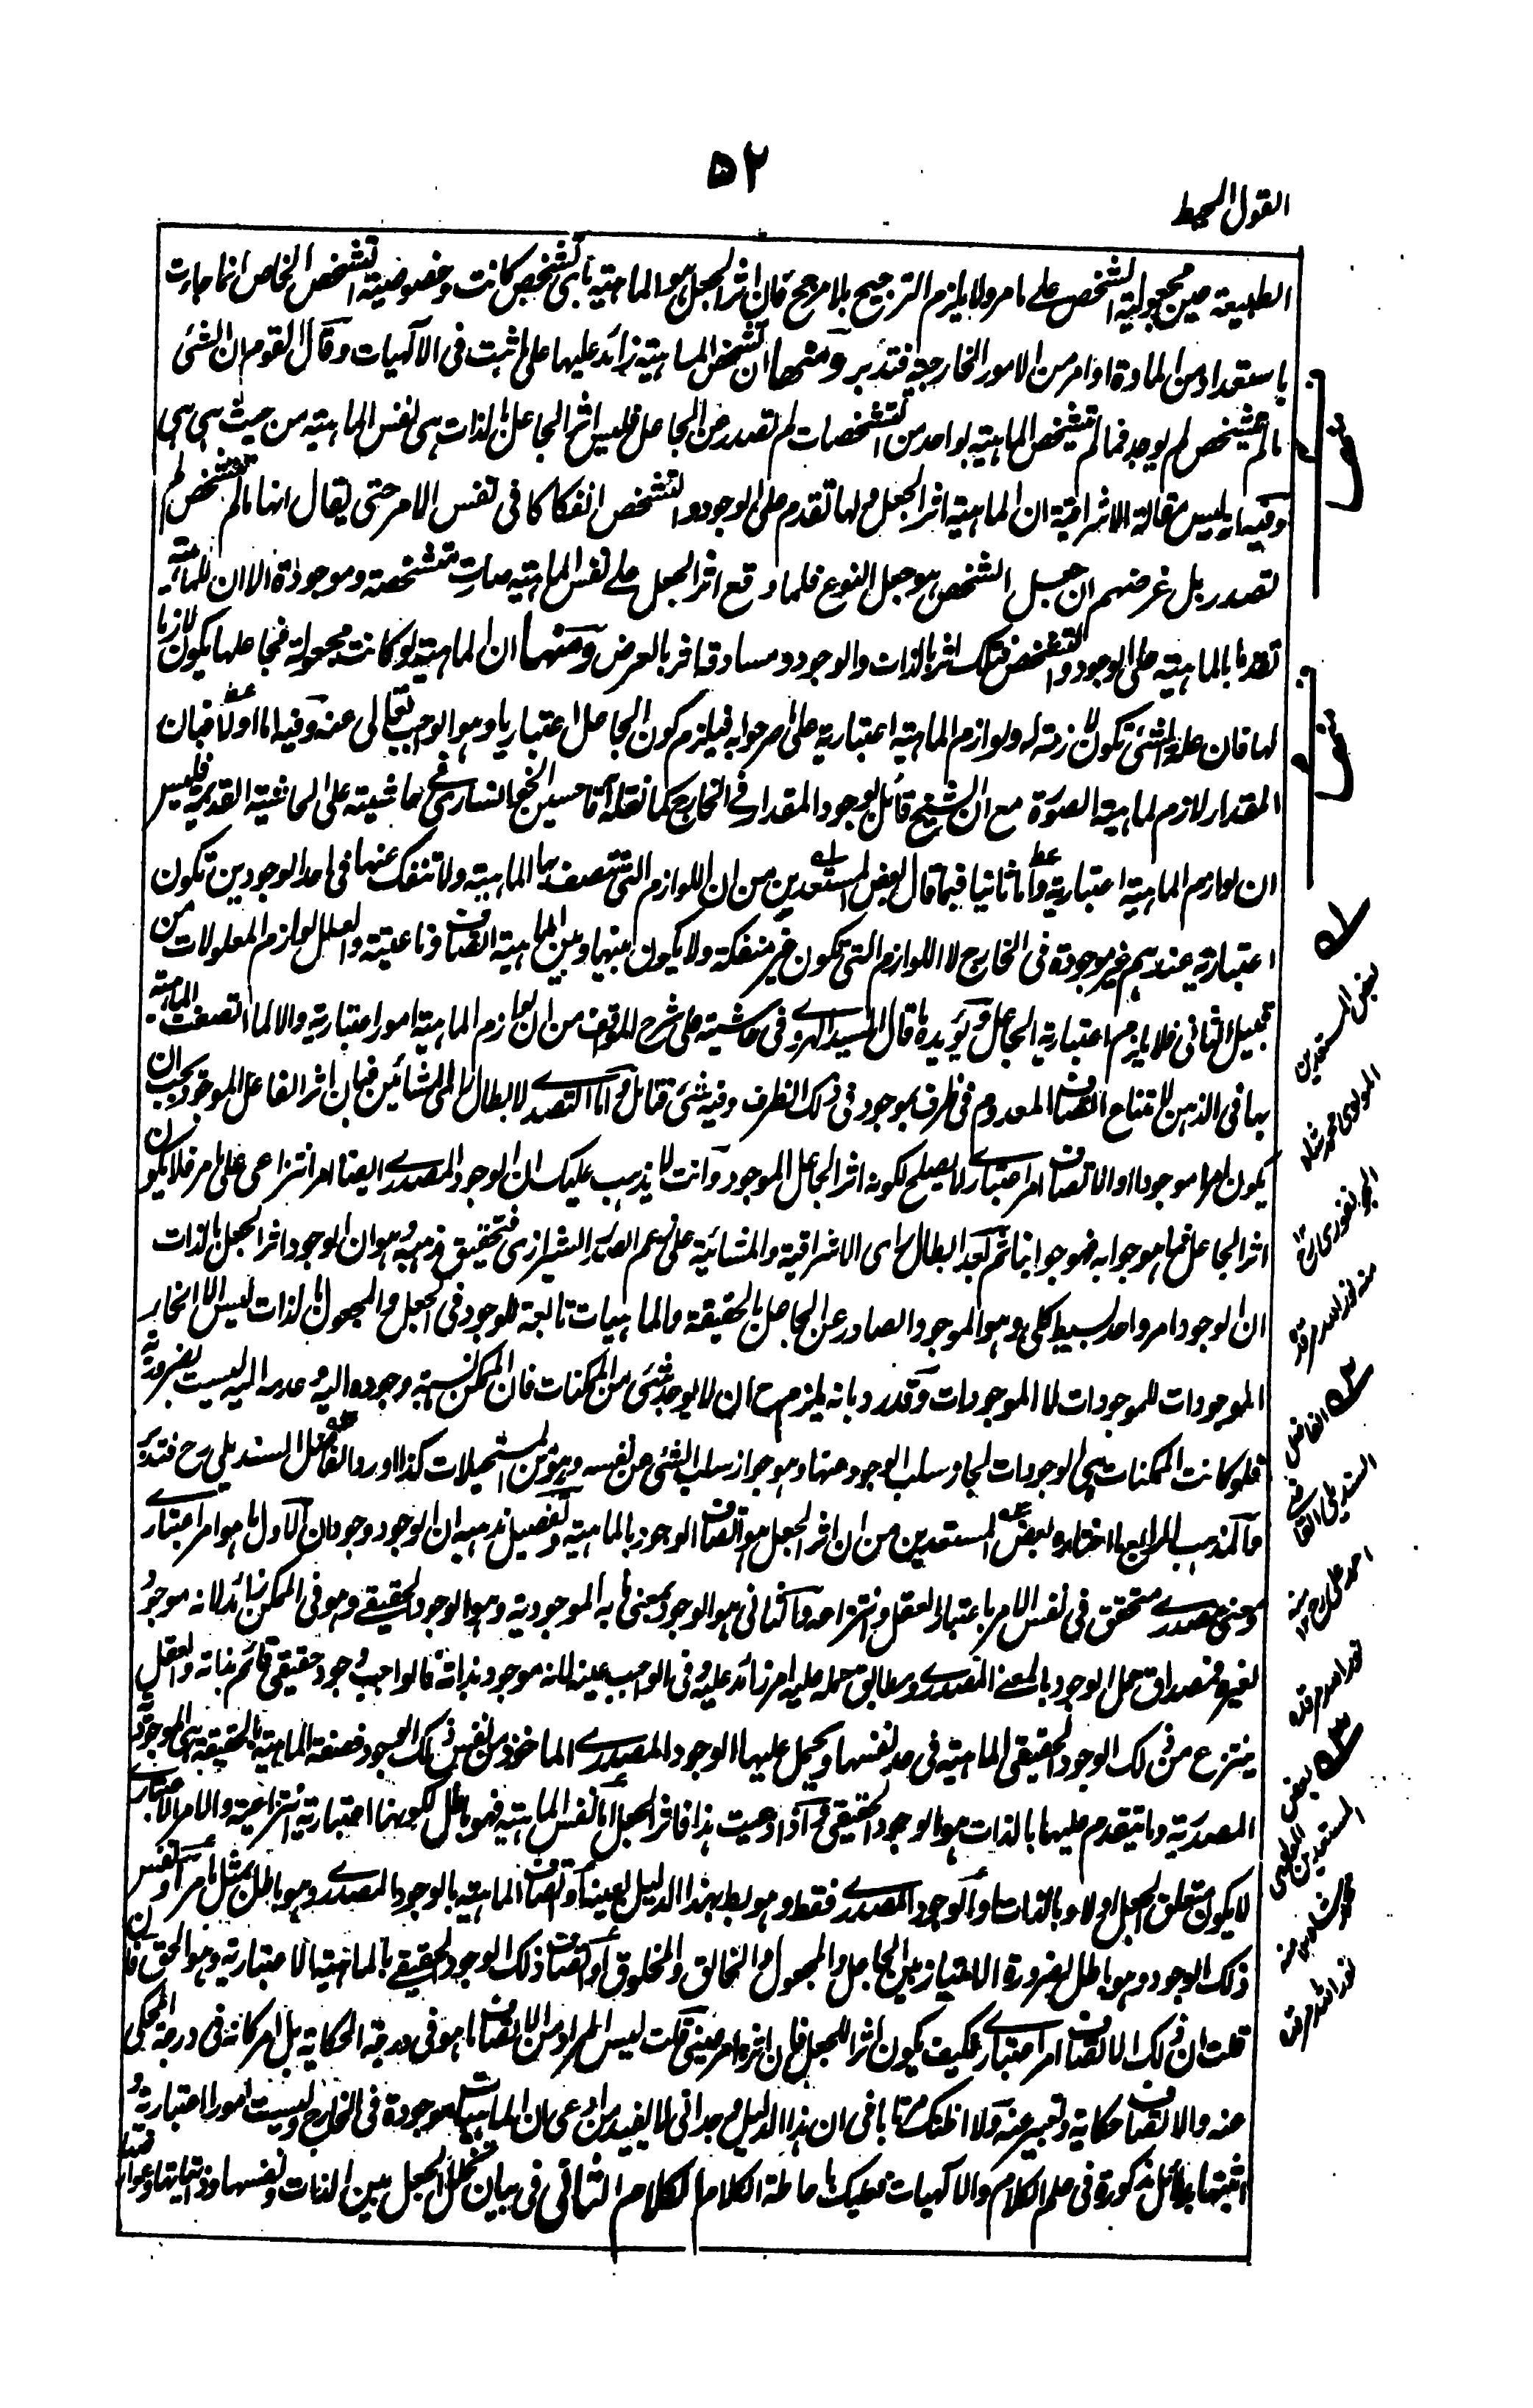 ٥٢
القول المحيط
الطبيعة حين مجعولية الشخص على ما مر ولا يلزم الترجيح بلا مرجح فان اثر الجعل هو الماهية باى تشخص كانت وخصوصية التشخص الخاص انما جاءت
باستعداد من المادة او امر من الامور الخارجية فتدبر ومنها ان تشخص الماهية زائد عليها على ما ثبت فى الآلهيات وقال القوم ان الشئ
ما لم يتشخص لم يوجد فما لم تتشخص الماهية بواحد من التشخصات لم تصدر عن الجاعل فليس اثر الجاعل بالذات هى نفس الماهية من حيث هى هى
وفيه انه ليس مقالة الاشراقية ان الماهية اثر الجعل ولها تقدم على الوجود والتشخص انفكاكا فى نفس الامر حتى يقال انها ما لم تتشخص لم
تصدر بل غرضهم ان جعل الشخص هو جعل النوع فلما وقع اثر الجعل على نفس الماهية صارت متشخصة وموجودة الا ان للماهية
تقدما بالماهية على الوجود والتشخص فتلك اثر بالذات والوجود ومساوقه اثر بالعرض ومنها ان الماهية لو كانت مجعولة فجاعلها يكون لازما
لها فان علة الشئ تكون لازمة له ولوازم الماهية اعتبارية على ما صرحوا به فيلزم كون الجاعل اعتباريا وهو الواجب تعالى عنه وفيه اما اولا فبان
المقدار لازم لماهية الصورة مع ان الشيخ قائل بوجود المقدار فى الخارج كما نقله آقا حسين الخوانسارى فى حاشيته على الحاشية القديمة فليس
ان لوازم الماهية اعتبارية واما ثانيا فبما قال بعض المستعدين من ان اللوازم التى تتصف بها الماهية ولا تنفك عنها فى احد الوجودين تكون
اعتبارية عندهم غير موجودة فى الخارج لا اللوازم التى تكون غير منفكة ولا يكون بينها وبين الماهية اتصاف وناعتية والعلل لوازم المعلولات من
قبيل الثانى فلا يلزم اعتبارية الجاعل ويؤيده ما قال السيد الهروى فى حاشيته على شرح المواقف من ان لوازم الماهية امور اعتبارية والا لما اتصفت الماهية
بها فى الذهن لامتناع اتصاف المعدوم فى ظرف بموجود فى ذلك الظرف وفيه شئ فتامل واما التصدى لابطال راى المشائين فبان اثر الفاعل الموجود يجب ان
يكون امرا موجودا والاتصاف امر اعتبارى لا يصلح لكونه اثر الجاعل الموجود وانت لا يذهب عليك ان الوجود المصدرى ايضا امر انتزاعى على ما مر فلا يكون
اثر الجاعل فما هو جوابه فهو جوابنا ثم بعد ابطال راى الاشراقية والمشائية على زعم الصدر الشيرازى فتحقيق مذهبه هو ان الوجود اثر الجعل بالذات
ان الوجود امر واحد بسيط كلى وهو الموجود الصادر عن الجاعل بالحقيقة والماهيات تابعة للوجود فى الجعل والمجعول بالذات ليس الا انحاء
الموجودات للموجودات لا الموجودات وقد رد بانه يلزم ح ان لا يوجد شئ من الممكنات فان الممكن نسبة وجوده اليه وعدمه اليه ليست بضرورية
فلو كانت الممكنات هى الوجودات لجاز سلب الوجود عنها وهو جواز سلب الشئ عن نفسه وهو من المستحيلات كذا اورد الفاضل السنديلى رح فتدبر
والمذهب الرابع ما اختاره بعض المستعدين من ان اثر الجعل هو اتصاف الوجود بالماهية وتفصيل مذهبه ان الوجود وجودان الاول ما هو امر اعتبارى
ومعنى مصدرى متحقق فى نفس الامر باعتبار العقل وانتزاعه والثانى هو الوجود بمعنى ما به الموجودية وهو الوجود الحقيقى وهو فى الممكن زائد لانه موجود
لغيره فمصداق حمل الوجود بالمعنى المصدرى ومطابق حمله عليه امر زائد عليه وفى الواجب عينه لانه موجود بذاته فالواجب وجود حقيقى قائم بذاته والعقل
ينتزع من ذلك الوجود الحقيقى الماهية فى حد نفسها ويحمل عليها الوجود المصدرى الماخوذ من نفس ذلك الوجود فصفة الماهية بالحقيقة هى الموجودية
المصدرية وما يتقدم عليها بالذات هو الوجود الحقيقى ح اذا وعيت هذا فاثر الجعل اما نفس الماهية فهو باطل لكونها اعتبارية انتزاعية والامر الاعتبارى
لا يكون متعلق الجعل اولا وبالذات او الوجود المصدرى فقط وهو بط بهذا الدليل بعينه او اتصاف الماهية بالوجود المصدرى وهو باطل بمثل ما مر او نفس
ذلك الوجود وهو باطل بضرورة الامتياز بين الجاعل والمجعول والخالق والمخلوق او اتصاف ذلك الوجود الحقيقى بالماهية الاعتبارية وهو الحق فان
قلت ان ذلك الاتصاف امر اعتبارى فكيف يكون اثرا للجعل فان اثره امر عينى قلت ليس المراد من الاتصاف ما هو فى درجة الحكاية بل امر كائن فى درجة المحكى
عنه والاتصاف حكاية وتعبير عنه ولا اظنك مرتابا فى ان هذا الدليل وجدانى لا يفيد من ادعى ان الماهيات موجودة فى الخارج وليست امورا اعتبارية و
اثبتها بدلائل مذكورة فى علم الكلام والآلهيات فعليك باحاطة الكلام الكلام الثانى فى بيان تخلل الجعل بين الذات ونفسها وذاتياتها وعوارضها
بعض المستعدين
المولوى محمد شاه
الجونفورى رح ١٢
منه نور الله مرقده
الفاضل
السنديلى القاضى
احمد على رح ١٢ منه
نور الله مرقده
بعض
المستعدين
منه
نور الله مرقده